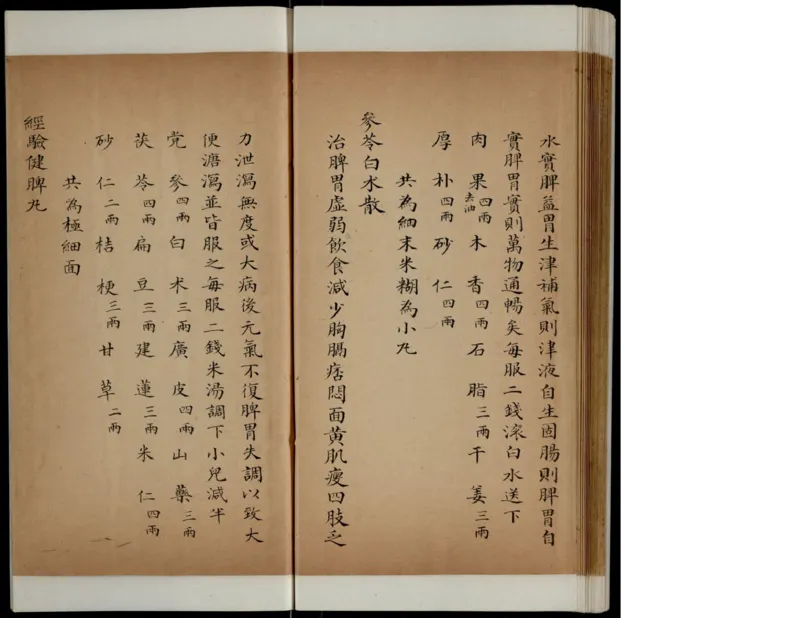 水實脾益胃生津補氣則津液自生固腸則脾胃自
實脾胃實則萬物通暢矣每服二錢滚白水送下
肉果四兩去油木香四兩石脂三兩干姜三兩
厚朴四兩砂仁四兩
共為細末米糊為小丸
參苓白朮散
治脾胃虛弱飲食減少胸膈痞悶面黄肌瘦四肢乏
力泄瀉無度或大病後元氣不復脾胃失調以致大
便溏瀉並皆服之每服二錢米湯調下小兒減半
党參四兩白术三兩廣皮四兩山藥三兩
茯苓四兩扁豆三兩建蓮三兩米仁四兩
砂仁二兩桔梗三兩甘草二兩
共為極細面
經驗健脾丸